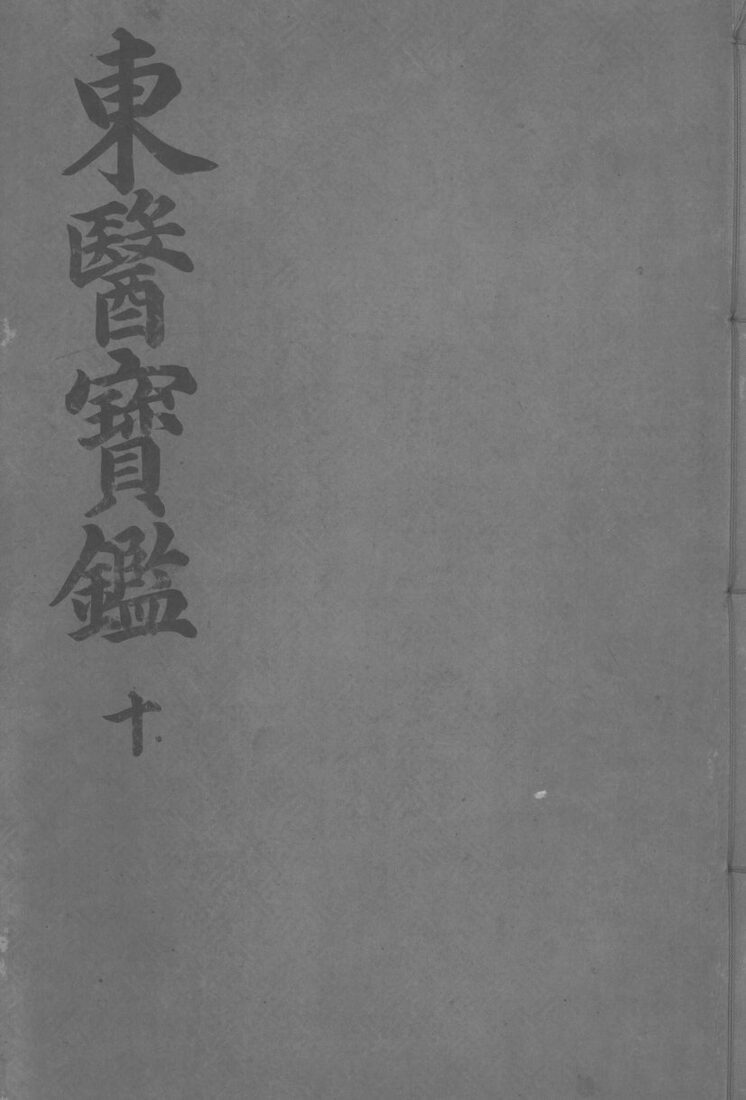 東醫寶鑑
十